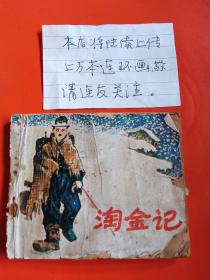 本店将陆续上传
上万本连环画,敬
请连友关注。
淘金记